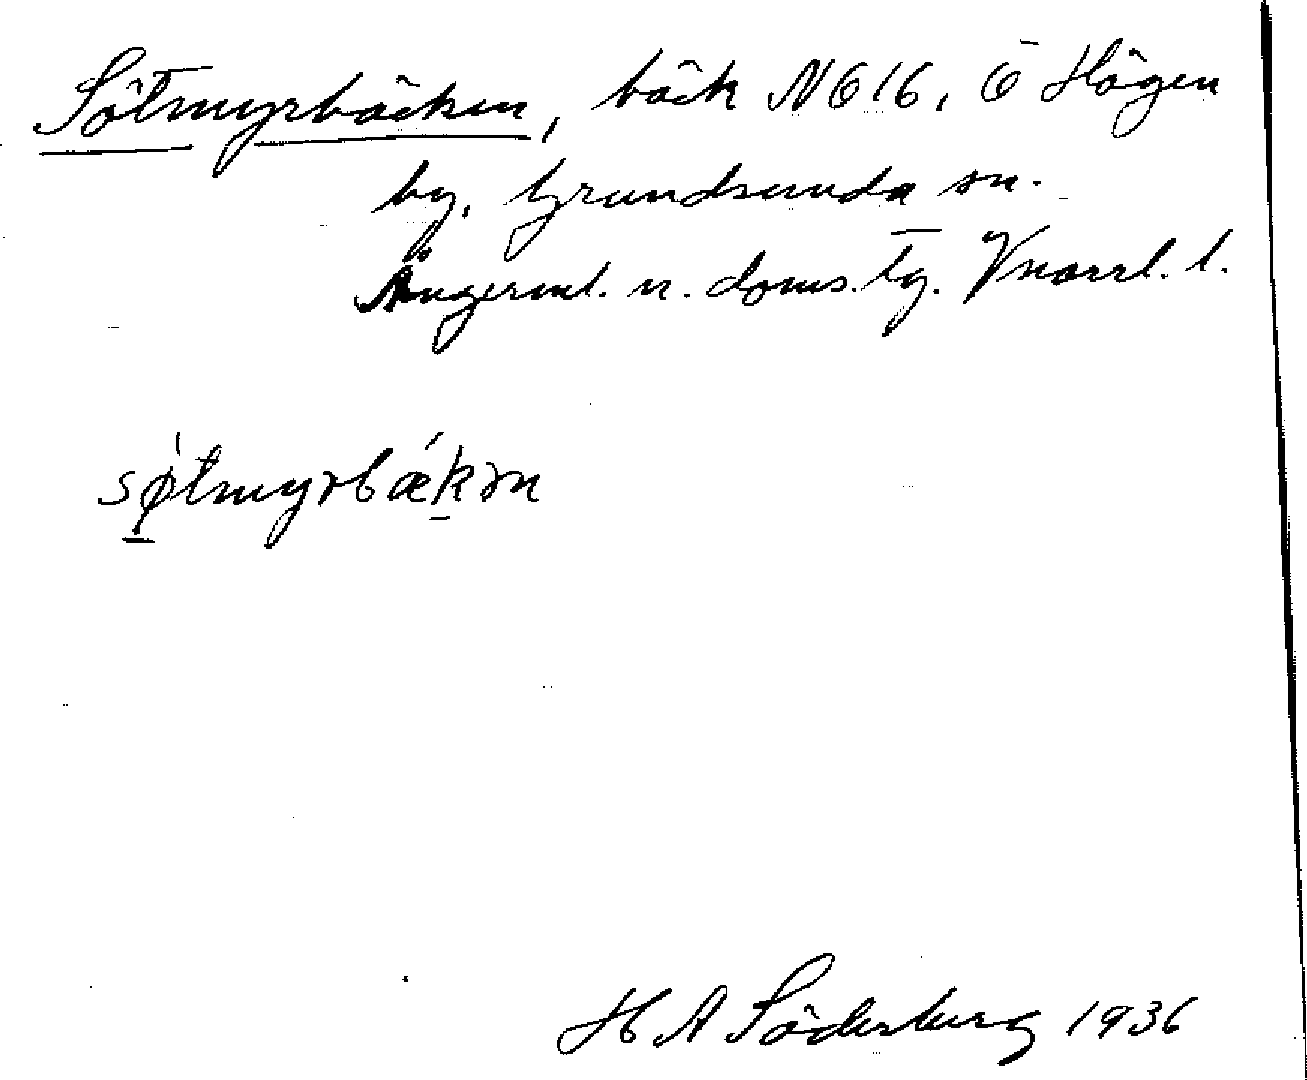 Sötmyrbäcken, bäck N616, Ö Högen
by, Grundsunda sn.
Ångerml. n. doms. tg. Vnorrl. l.
sø̀tmyrbǽkən
H A Söderberg 1936